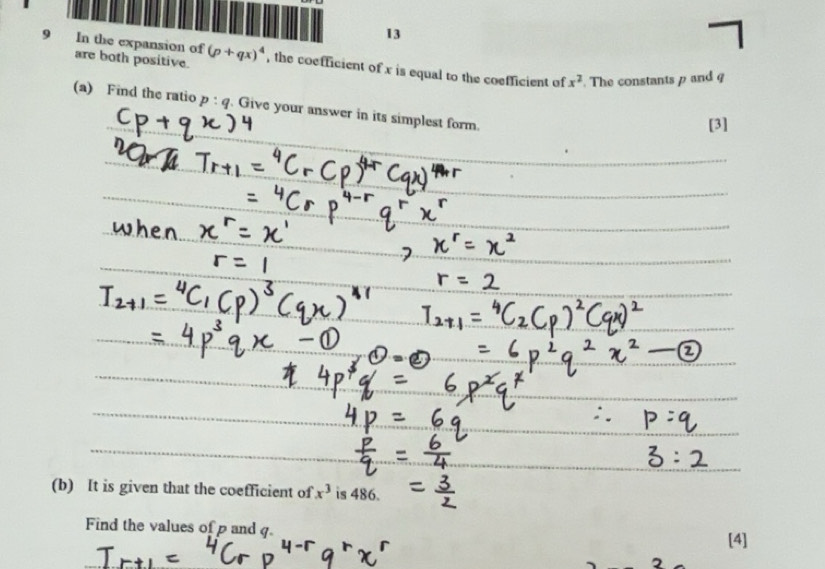 13
9 In the expansion of (p + qx)⁴, the coefficient of x is equal to the coefficient of x². The constants p and q
are both positive.
(a) Find the ratio p : q. Give your answer in its simplest form. [3]
(p + qx)4
Tr+1 = ⁴Cr (p)⁴⁻ʳ (qx)ʳ
= ⁴Cr p⁴⁻ʳ qʳ xʳ
when xʳ = x¹ , xʳ = x²
r = 1 r = 2
T2+1 = ⁴C₁ (p)³ (qx)¹ T2+1 = ⁴C₂ (p)² (qx)²
= 4p³qx – ① = 6p²q²x² – ②
① = ②
4p³q = 6p²q²
4p = 6q ∴ p : q
p/q = 6/4 3 : 2
= 3/2
(b) It is given that the coefficient of x³ is 486.
Find the values of p and q. [4]
Tr+1 = ⁴Cr p⁴⁻ʳ qʳ xʳ